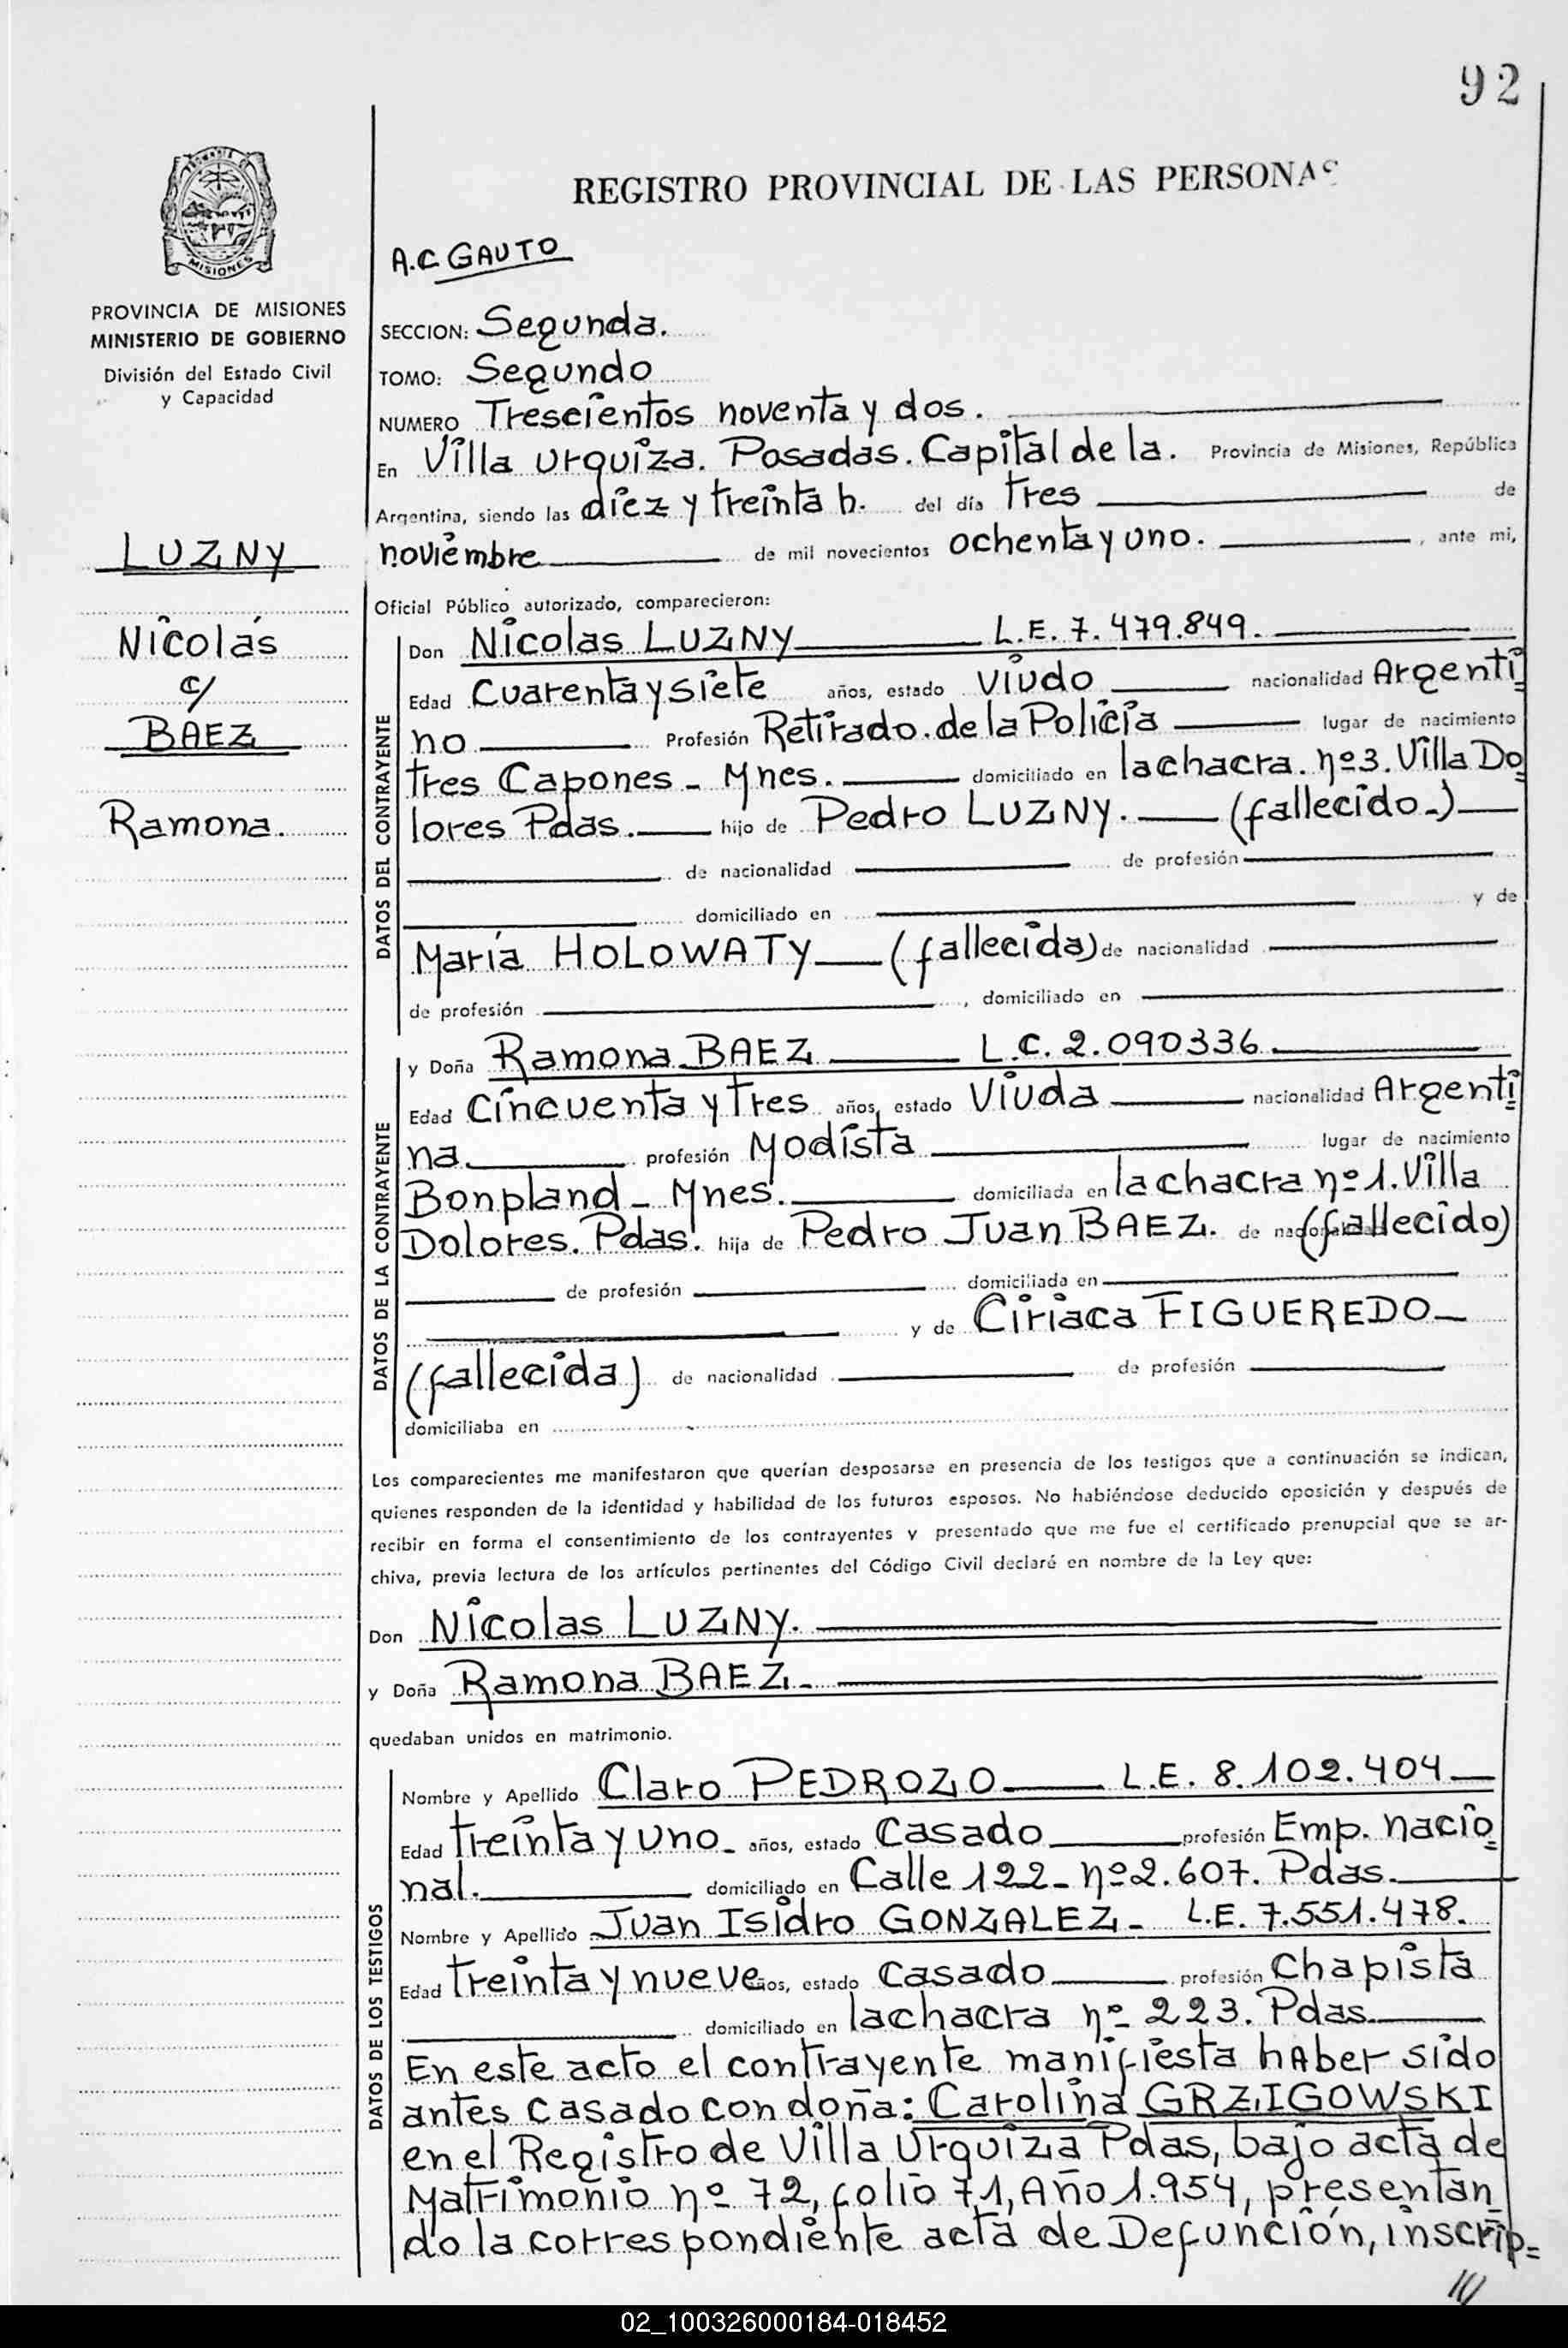 92
REGISTRO PROVINCIAL DE LAS PERSONAS
A.C GAUTO
MISIONES
PROVINCIA DE MISIONES
MINISTERIO DE GOBIERNO
División del Estado Civil
y Capacidad
LUZNY
Nicolás
c/
BAEZ
Ramona.
SECCION: Segunda.
TOMO: Segundo
NUMERO Trescientos noventa y dos.
En Villa Urquiza. Posadas. Capital de la. Provincia de Misiones, República
Argentina, siendo las diez y treinta h. del día tres de
noviembre de mil novecientos ochenta y uno. , ante mi,
Oficial Público autorizado, comparecieron:
DATOS DEL CONTRAYENTE
Don Nicolas LUZNY L.E. 7.479.849.
Edad Cuarenta y siete años, estado Viudo nacionalidad Argenti
no Profesión Retirado de la Policía lugar de nacimiento
tres Capones - Mnes. domiciliado en la chacra. nº 3. Villa Do
lores Pdas. hijo de Pedro LUZNY. (fallecido.)
de nacionalidad de profesión
domiciliado en y de
María HOLOWATY (fallecida) de nacionalidad
de profesión , domiciliado en
DATOS DE LA CONTRAYENTE
y Doña Ramona BAEZ L.C. 2.090336
Edad Cincuenta y tres años, estado Viuda nacionalidad Argenti
na profesión Modista lugar de nacimiento
Bonpland - Mnes. domiciliada en la chacra nº 1. Villa
Dolores. Pdas. hija de Pedro Juan BAEZ. de nacionalidad (fallecido)
de profesión domiciliada en
y de Ciriaca FIGUEREDO
(fallecida) de nacionalidad de profesión
domiciliaba en
Los comparecientes me manifestaron que querían desposarse en presencia de los testigos que a continuación se indican,
quienes responden de la identidad y habilidad de los futuros esposos. No habiéndose deducido oposición y después de
recibir en forma el consentimiento de los contrayentes y presentado que me fue el certificado prenupcial que se ar-
chiva, previa lectura de los artículos pertinentes del Código Civil declaré en nombre de la Ley que:
Don Nicolas LUZNY.
y Doña Ramona BAEZ.
quedaban unidos en matrimonio.
DATOS DE LOS TESTIGOS
Nombre y Apellido Claro PEDROZO L.E. 8.102.404
Edad treinta y uno años, estado Casado profesión Emp. nacio
nal. domiciliado en Calle 122 - nº 2.607. Pdas.
Nombre y Apellido Juan Isidro GONZALEZ - L.E. 7.551.478.
Edad treinta y nueve años, estado Casado profesión Chapista
domiciliado en la chacra nº 223. Pdas.
En este acto el contrayente manifiesta haber sido
antes casado con doña: Carolina GRZIGOWSKI
en el Registro de Villa Urquiza Pdas, bajo acta de
Matrimonio nº 72, folio 71, Año 1.954, presentan
do la correspondiente acta de Defunción, inscrip=
02_100326000184-018452